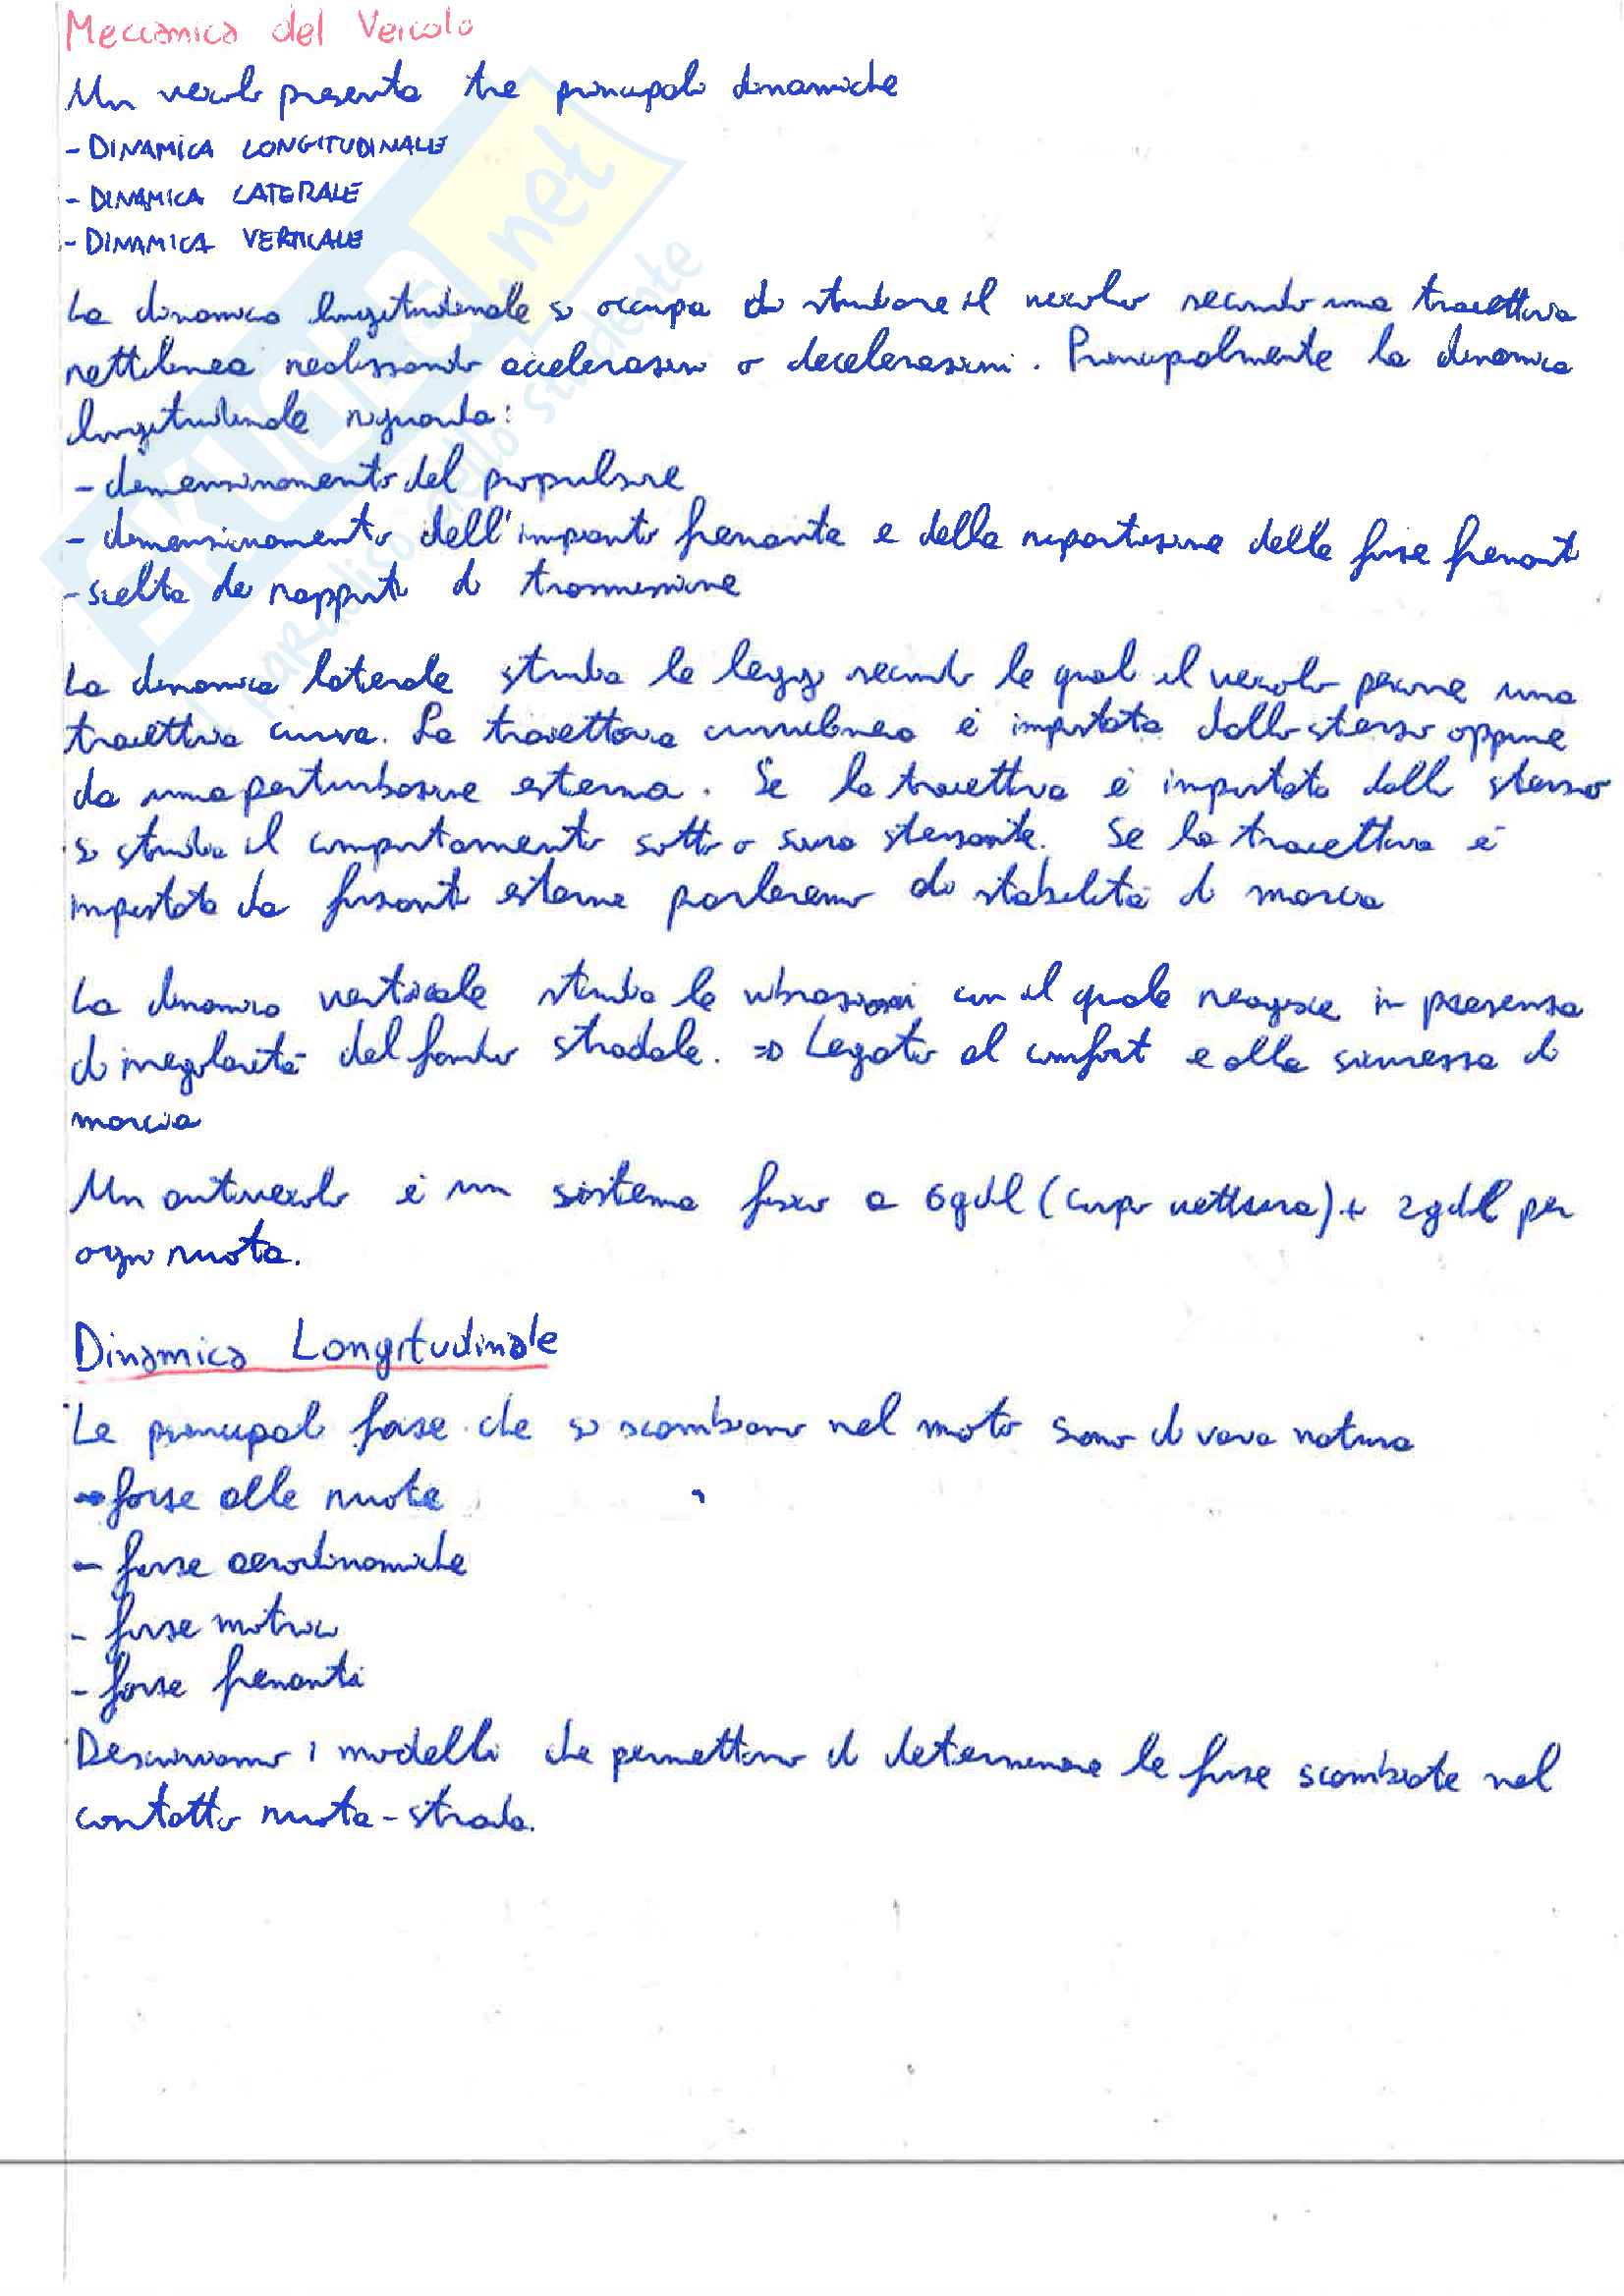 Meccanica del Veicolo
Un veicolo presenta tre principali dinamiche
- DINAMICA LONGITUDINALE
- DINAMICA LATERALE
- DINAMICA VERTICALE
La dinamica longitudinale si occupa di studiare il veicolo secondo una traiettoria
rettilinea realizzando accelerazioni o decelerazioni. Principalmente la dinamica
longitudinale riguarda:
- dimensionamento del propulsore
- dimensionamento dell'impianto frenante e della ripartizione delle forze frenanti
- scelta dei rapporti di trasmissione
La dinamica laterale studia le leggi secondo le quali il veicolo percorre una
traiettoria curva. La traiettoria curvilinea è impostata dallo sterzo oppure
da una perturbazione esterna. Se la traiettoria è impostata dallo sterzo
si studia il comportamento sotto o sovra sterzante. Se la traiettoria è
impostata da forzanti esterne parleremo di stabilità di marcia
La dinamica verticale studia le vibrazioni con il quale reagisce in presenza
di irregolarità del fondo stradale. => Legato al comfort e alla sicurezza di
marcia
Un autoveicolo è un sistema fisico a 6gdl (corpo vettura) + 2gdl per
ogni ruota.
Dinamica Longitudinale
Le principali forze che si scambiano nel moto sono di varia natura
- forze alle ruote
- forze aerodinamiche
- forze motrici
- forze frenanti
Descriviamo i modelli che permettono di determinare le forze scambiate nel
contatto ruota-strada.
SKUOLA.net
paradiso dello studente